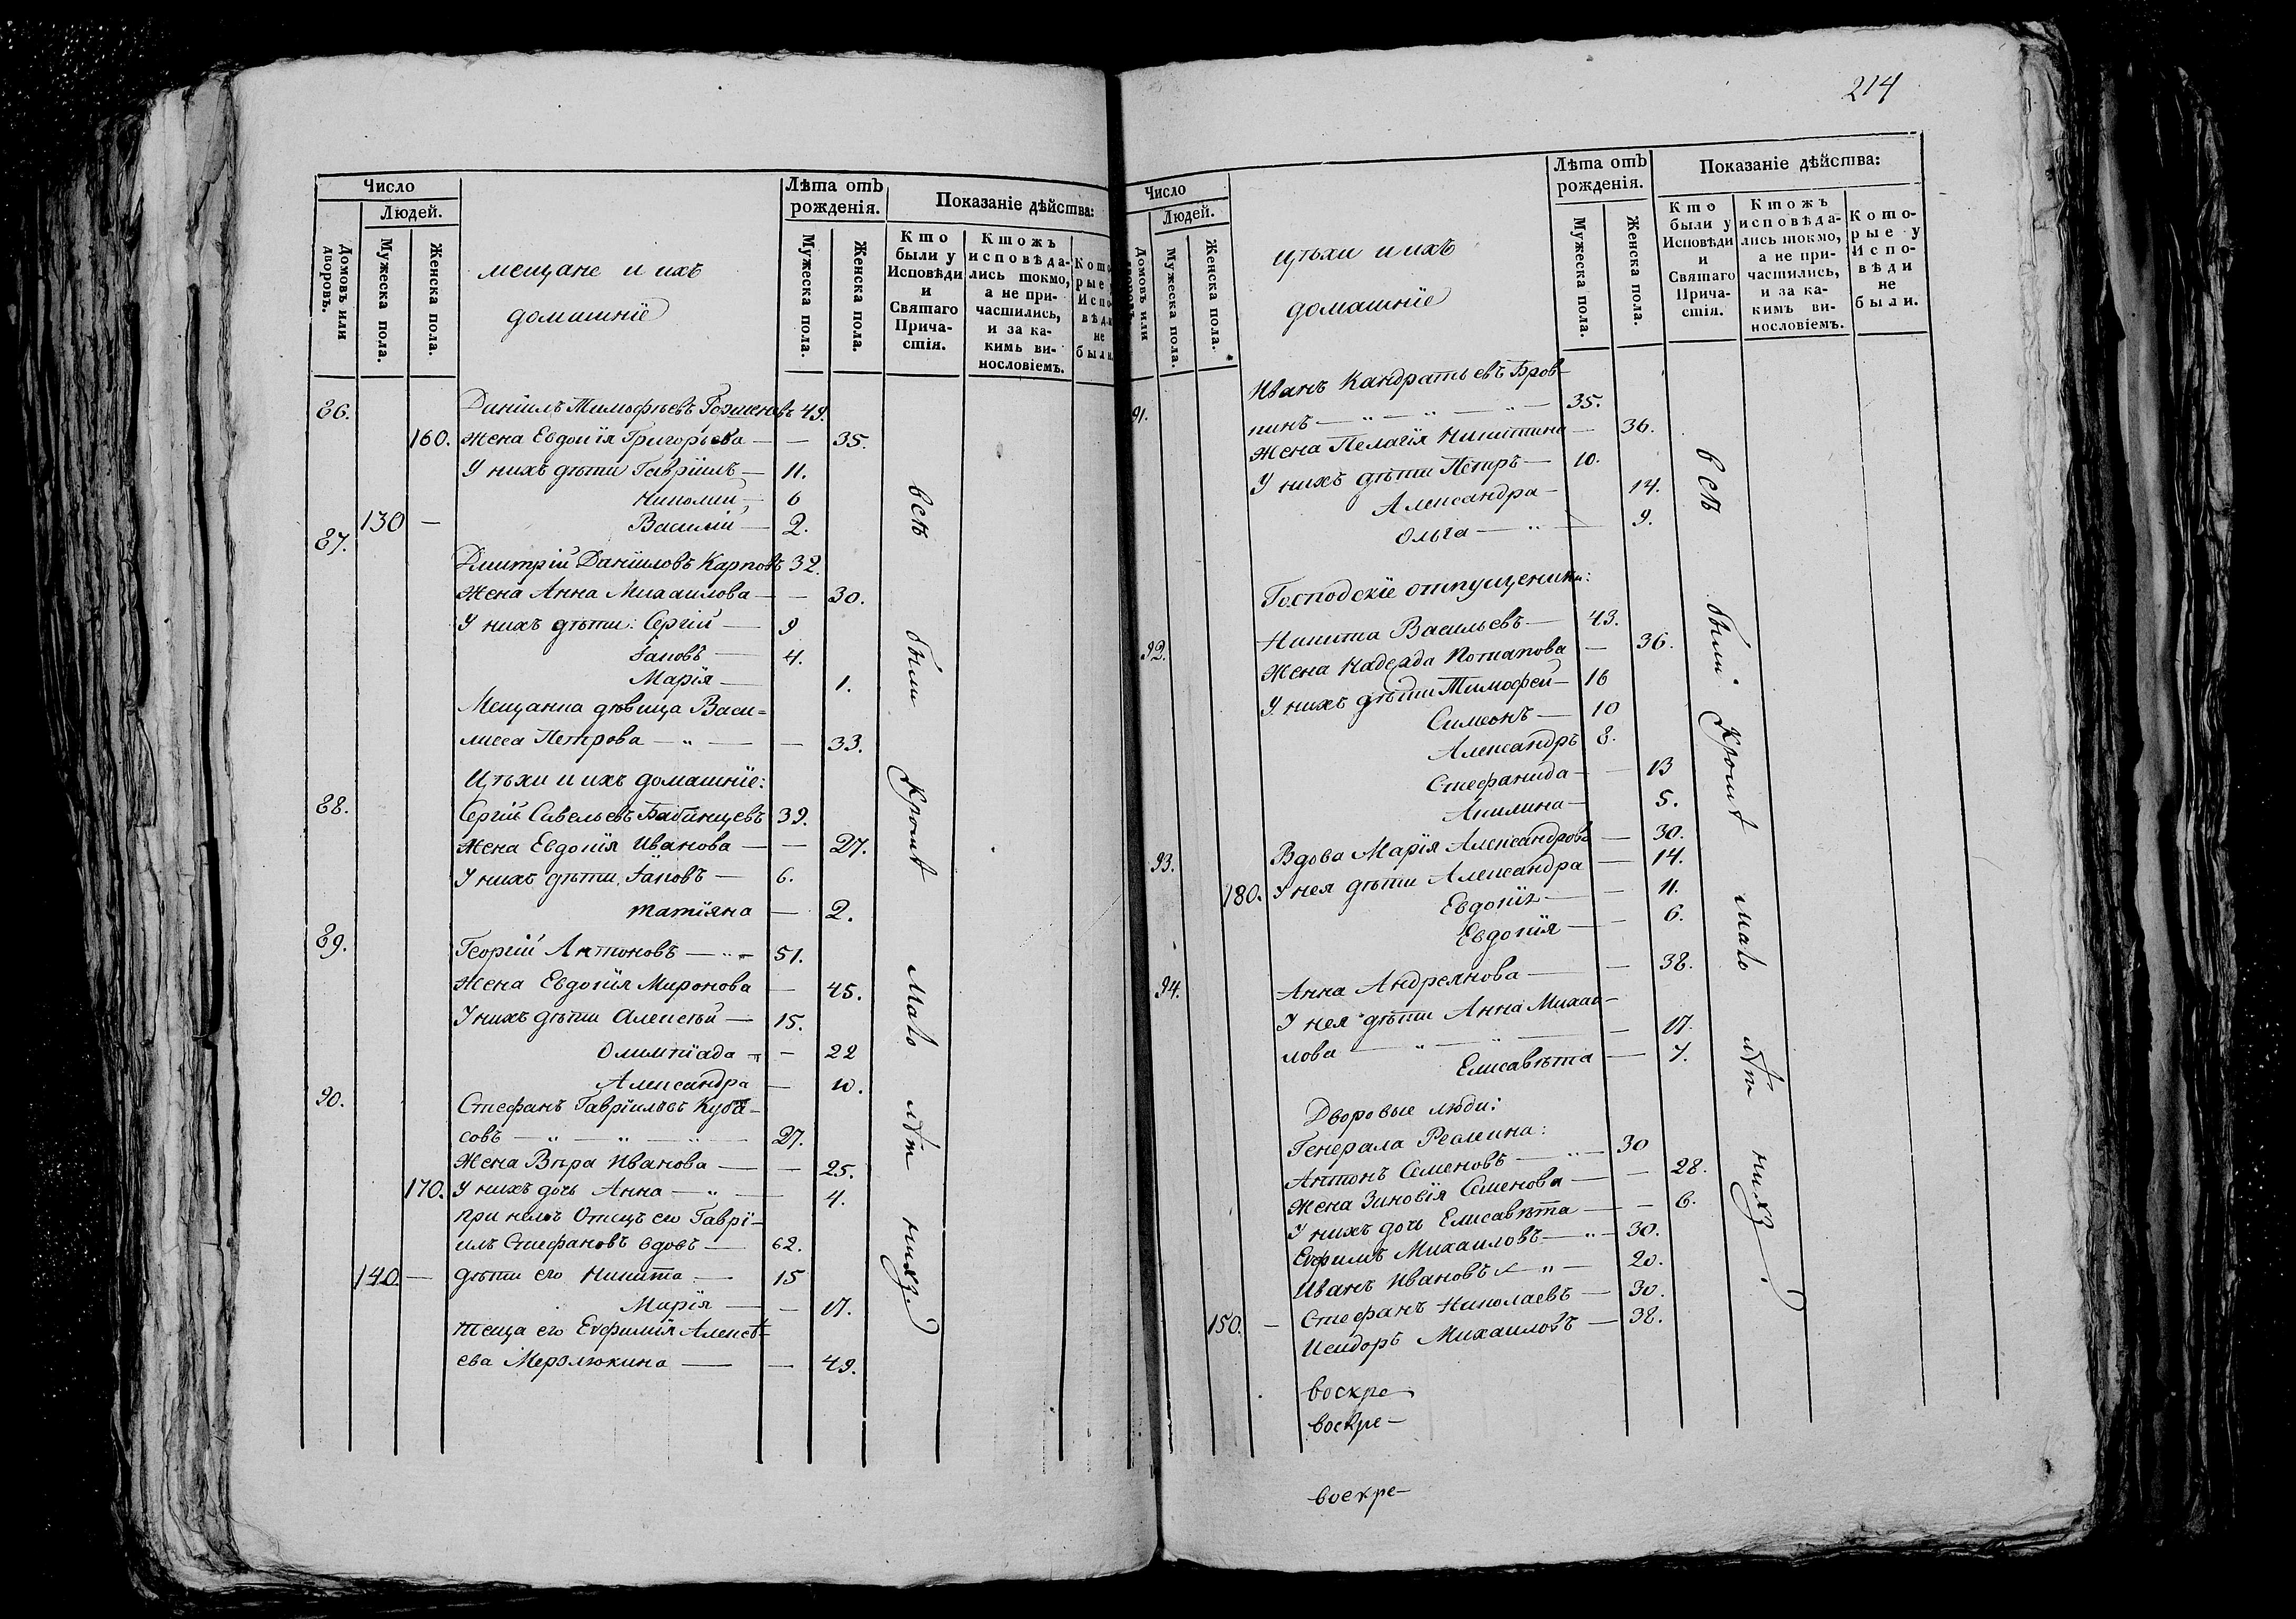 Число
Людей.
Домовъ или дворовъ.
Мужеска пола.
Женска пола.
мещане и ихъ
домашніе
Лѣта отъ
рожденія.
Мужеска пола.
Женска пола.
Показаніе дѣйства:
Кто
были у
Исповѣди
и
Святаго
Прича-
стія.
Ктожъ
исповѣда-
лись токмо,
а не при-
частились,
и за ка-
кимъ ви-
нословіемъ.
86. Даніилъ Тимофѣевъ 49.
160. Жена Евдокія Григорьева — — 35.
У нихъ дѣти Гавріилъ — 11.
Николай — 6
130 — Василій — 2.
87.
Димитрій Даніиловъ Карповъ 32.
Жена Анна Михаилова — — 30.
У нихъ дѣти: Сергій — 9
Іаковъ — 4.
Марія — 1.
Мещанка дѣвица Васи=
лисса Петрова — „ — — 33.
Цѣхи и ихъ домашніе:
88. Сергій Савельевъ Бабинцевъ 39.
Жена Евдокія Иванова — — 27.
У нихъ дѣти Іаковъ — 6.
Татіяна — 2.
89. Георгій Антоновъ — „ — 51.
Жена Евдокія Миронова — 45.
У нихъ дѣти Алексѣй — 15.
Олимпіада — — 22
Александра — 10.
90. Стефанъ Гавріиловъ Куба-
совъ — „ — „ — „ — 27.
Жена Вѣра Иванова — — 25.
170. У нихъ дочь Анна — „ — 4.
При немъ Отецъ его Гаврі-
илъ Стефановъ вдовъ — 62.
140. — дѣти его Никита — 15
Марія — — 17.
Теща его Евфимія Алексѣ-
ева Мерзлюкина — — 49.
всѣ были кромѣ мало лѣтнихъ.
214
Число
Людей.
Домовъ или
Мужеска пола.
Женска пола.
цѣхи и ихъ
домашніе
Лѣта отъ
рожденія.
Мужеска пола.
Женска пола.
Показаніе дѣйства:
Кто
были у
Исповѣди
и
Святаго
Прича-
стія.
Ктожъ
исповѣда-
лись токмо,
а не при-
частились,
и за ка-
кимъ ви-
нословіемъ.
Кото-
рые у
Испо-
вѣди
не
были.
91. Иванъ Кандратьевъ Бров-
кинъ — „ — „ — „ — 35.
Жена Пелагія Никитина — 36.
У нихъ дѣти Петръ — 10.
Александра — 14.
Ольга — „ — 9.
Господскіе отпущеники:
92. Никита Васильевъ — 43.
Жена Надежда Потапова — 36.
У нихъ дѣти Тимофей — 16
Симеонъ — 10
Александръ 8.
Стефанида — — 13
Акилина — 5.
93. Вдова Марія Александрова — 30.
180. У нея дѣти Александра — 14.
Евдокія — — 11.
Евдокія — — 6.
94. Анна Андреянова — — 38.
У нея дѣти Анна Михаи-
лова — „ — „ — — 17.
Елисавѣта — 7.
Дворовые люди:
Генерала
Антонъ Семеновъ — „ — 30
Жена Зиновія Семенова — — 28.
У нихъ дочь Елисавѣта — — 6.
Ефимъ Михаиловъ — „ — 30.
Иванъ Ивановъ — „ — 20.
Стефанъ Николаевъ — 30.
150. — Исидоръ Михаиловъ — 38.
всѣ были кромѣ мало лѣтнихъ.
воскре
воскре-
воскре-